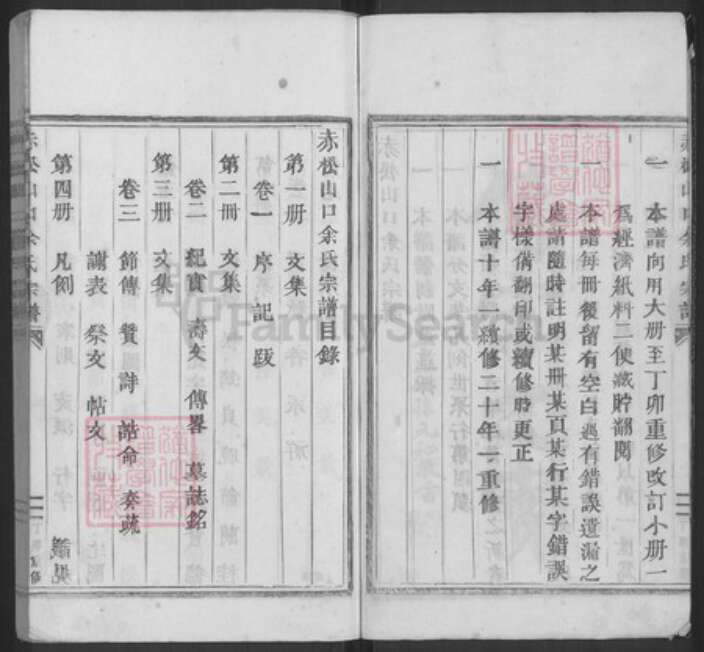 一　本譜向用大册至丁卯重修改訂小册一
爲經濟紙料二便藏貯翻閱
一　本譜每冊後留有空白遇有錯誤遺漏之
處請隨時註明某冊某頁某行某字錯誤
字樣備翻印或續修時更正
一　本譜十年一續修二十年一重修
赤松山口余氏宗譜目錄
第一册　文集
卷一　序　記　跋
第二冊　文集
卷二　紀實　壽文　傳畧　墓誌銘
第三冊　文集
卷三　節傳　贊　詩　誥命　奏疏
謝表　祭文　帖文
第四册　凡例
赤松山口余氏宗譜
FamilySearch